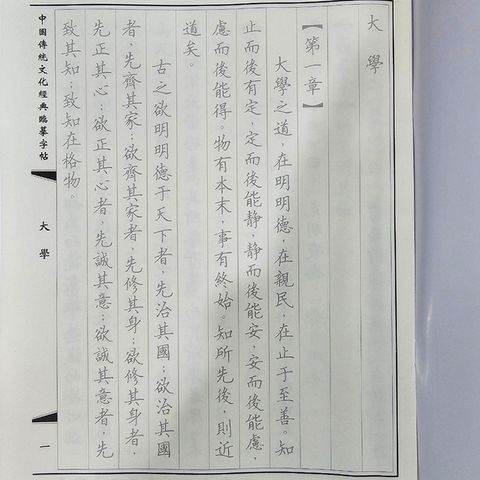 大學
【第一章】
大學之道，在明明德，在親民，在止于至善。知
止而後有定，定而後能静，静而後能安，安而後能慮，
慮而後能得。物有本末，事有終始。知所先後，則近
道矣。
古之欲明明德于天下者，先治其國；欲治其國
者，先齊其家；欲齊其家者，先修其身；欲修其身者，
先正其心；欲正其心者，先誠其意；欲誠其意者，先
致其知；致知在格物。
中國傳統文化經典臨摹字帖
大學
一